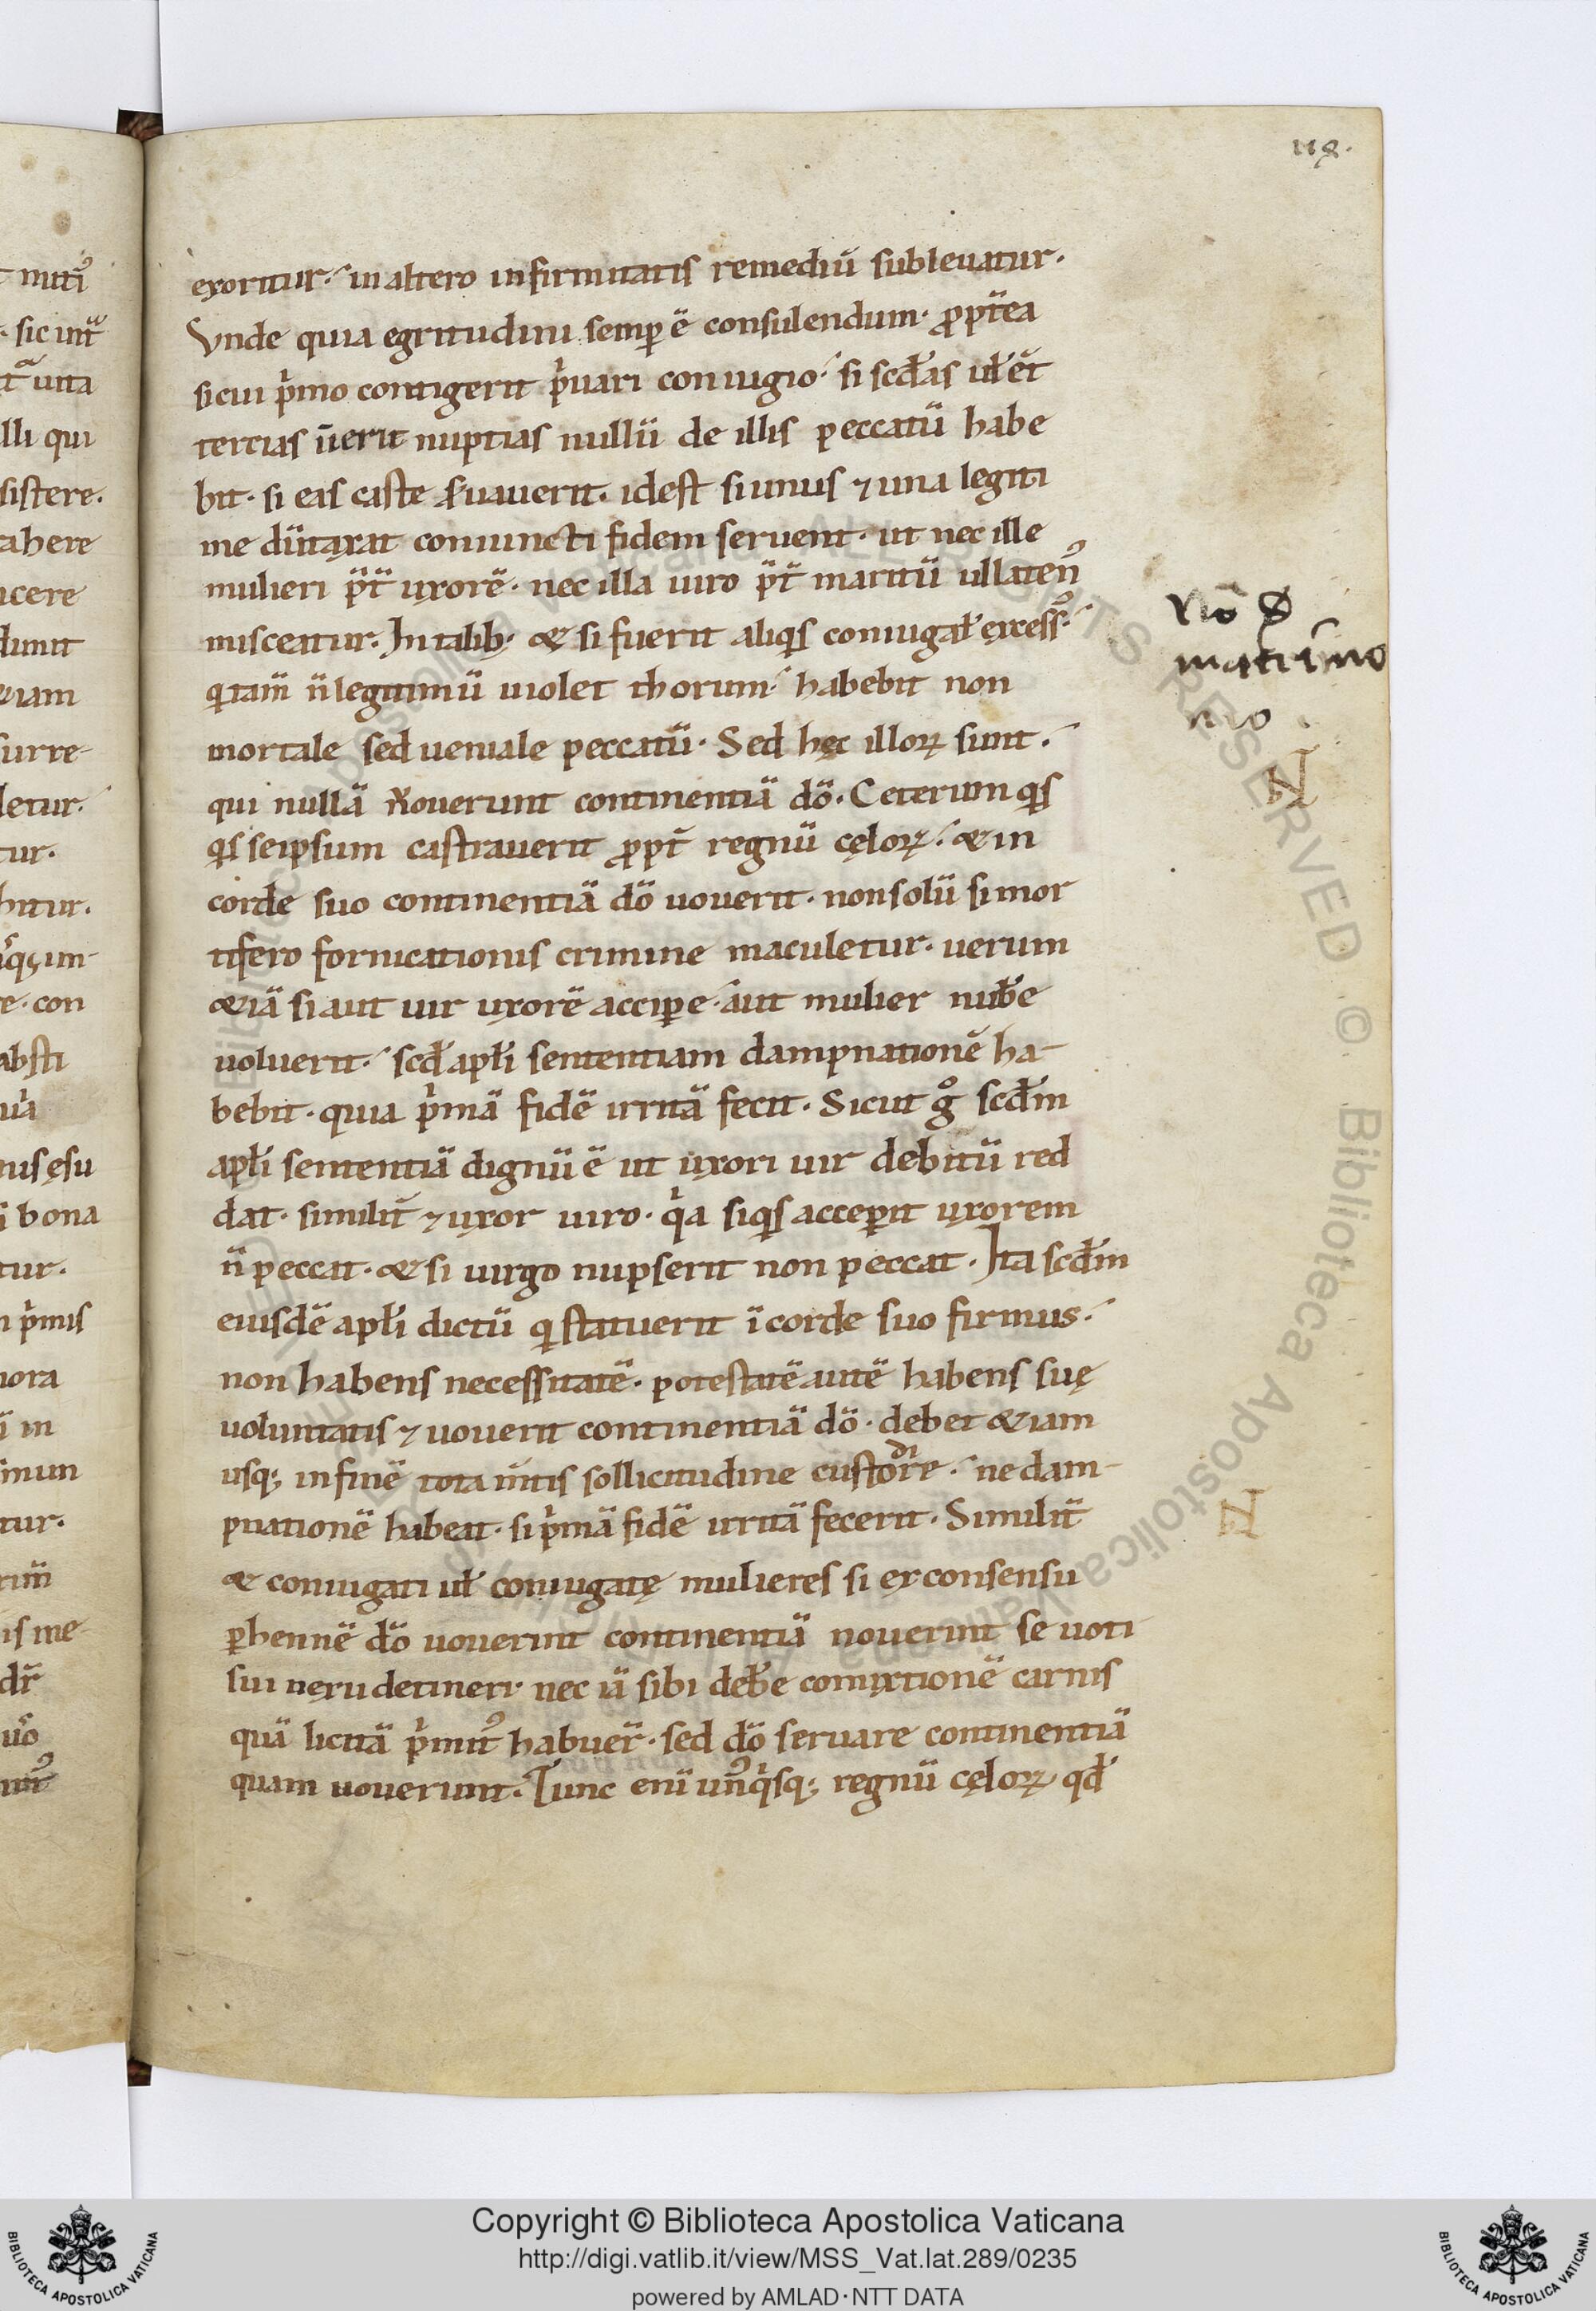 118.
exoritur. in altero infirmitatis remediū subleuatur.
Vnde quia egritudini semꝑ ē consulendum. ꝓpt̄ea
sicui pͥmo contigerit pͥuari coniugio. si scd̄as ut ł et̄
tercias ūerit nuptias nullū de illis peccatū habe
bit. si eas caste s̄uauerit. idest si unus ⁊ una legiti
me dūtaxat coniuncti fidem seruent. ut nec ille
mulieri p̄t̄ uxorē. nec illa uiro p̄t̄ maritū ullaten᷒
misceatur. In talib; & si fuerit aliqͥs coniugał excess᷒.
qͥ tam̄ n̄ legitimū uiolet thorum. habebit non
mortale sed ueniale peccatū. Sed hęc illoꝝ sunt.
qui nullā uouerunt continentiā dō. Ceterum qͥs
qͥs seipsum castrauerit ꝓpt̄ regnū cęloꝝ. & in
corde suo continentiā dō uouerit. non solū si mor
tifero fornicationis crimine maculetur. uerum
&iā si aut uir uxorē acciꝑe. aut mulier nub̄e
uoluerit. scd̄ apłi sententiam dampnationē ha-
bebit. quia pͥmā fidē irritā fecit. Sicut gͦ scd̄m
apłi sententiā dignū ē ut uxori uir debitū red
dat. similit̄ ⁊ uxor uiro. qͥa siqͥs acceꝑit uxorem
n̄ peccat. & si uirgo nupserit non peccat. Ita scd̄m
eiusdē apłi dictū qͥ statuerit ī corde suo firmus.
non habens necessitatē. potestatē autē habens suę
uoluntatis ⁊ uouerit continentiā dō. debet &iam
usq; in finē tota m̄tis sollicitudine custodire. ne dam-
pnationē habeat. si pͥmā fidē irritā fecerit. Similit̄
& coniugati uł coniugatę mulieres si ex consensu
ꝑhennē dō uouerint continentiā nouerint se uoti
sui nexu detineri. nec iā sibi deb̄e comixtionē carnis
quā licitā pͥmit᷒ habuer̄. sed dō seruare continentiā
quam uouerunt. Tunc enī un᷒qͥsq; regnū cęloꝝ qd̄
No ꝺ
matrimo
nio.
N
N
t miti᷒
. sic int̄
ut̄ᵃ uita
lli qui
sistere.
ahere
icere
dunt
&iam
surre-
letur.
tur.
bitur.
re. con
absti
us ęsu
bona
tur.
pͥmis
nora
in
mun
tur.
is me-
dr̄
uͦo
Copyright © Biblioteca Apostolica Vaticana
http://digi.vatlib.it/view/MSS_Vat.lat.289/0235
powered by AMLAD·NTT DATA